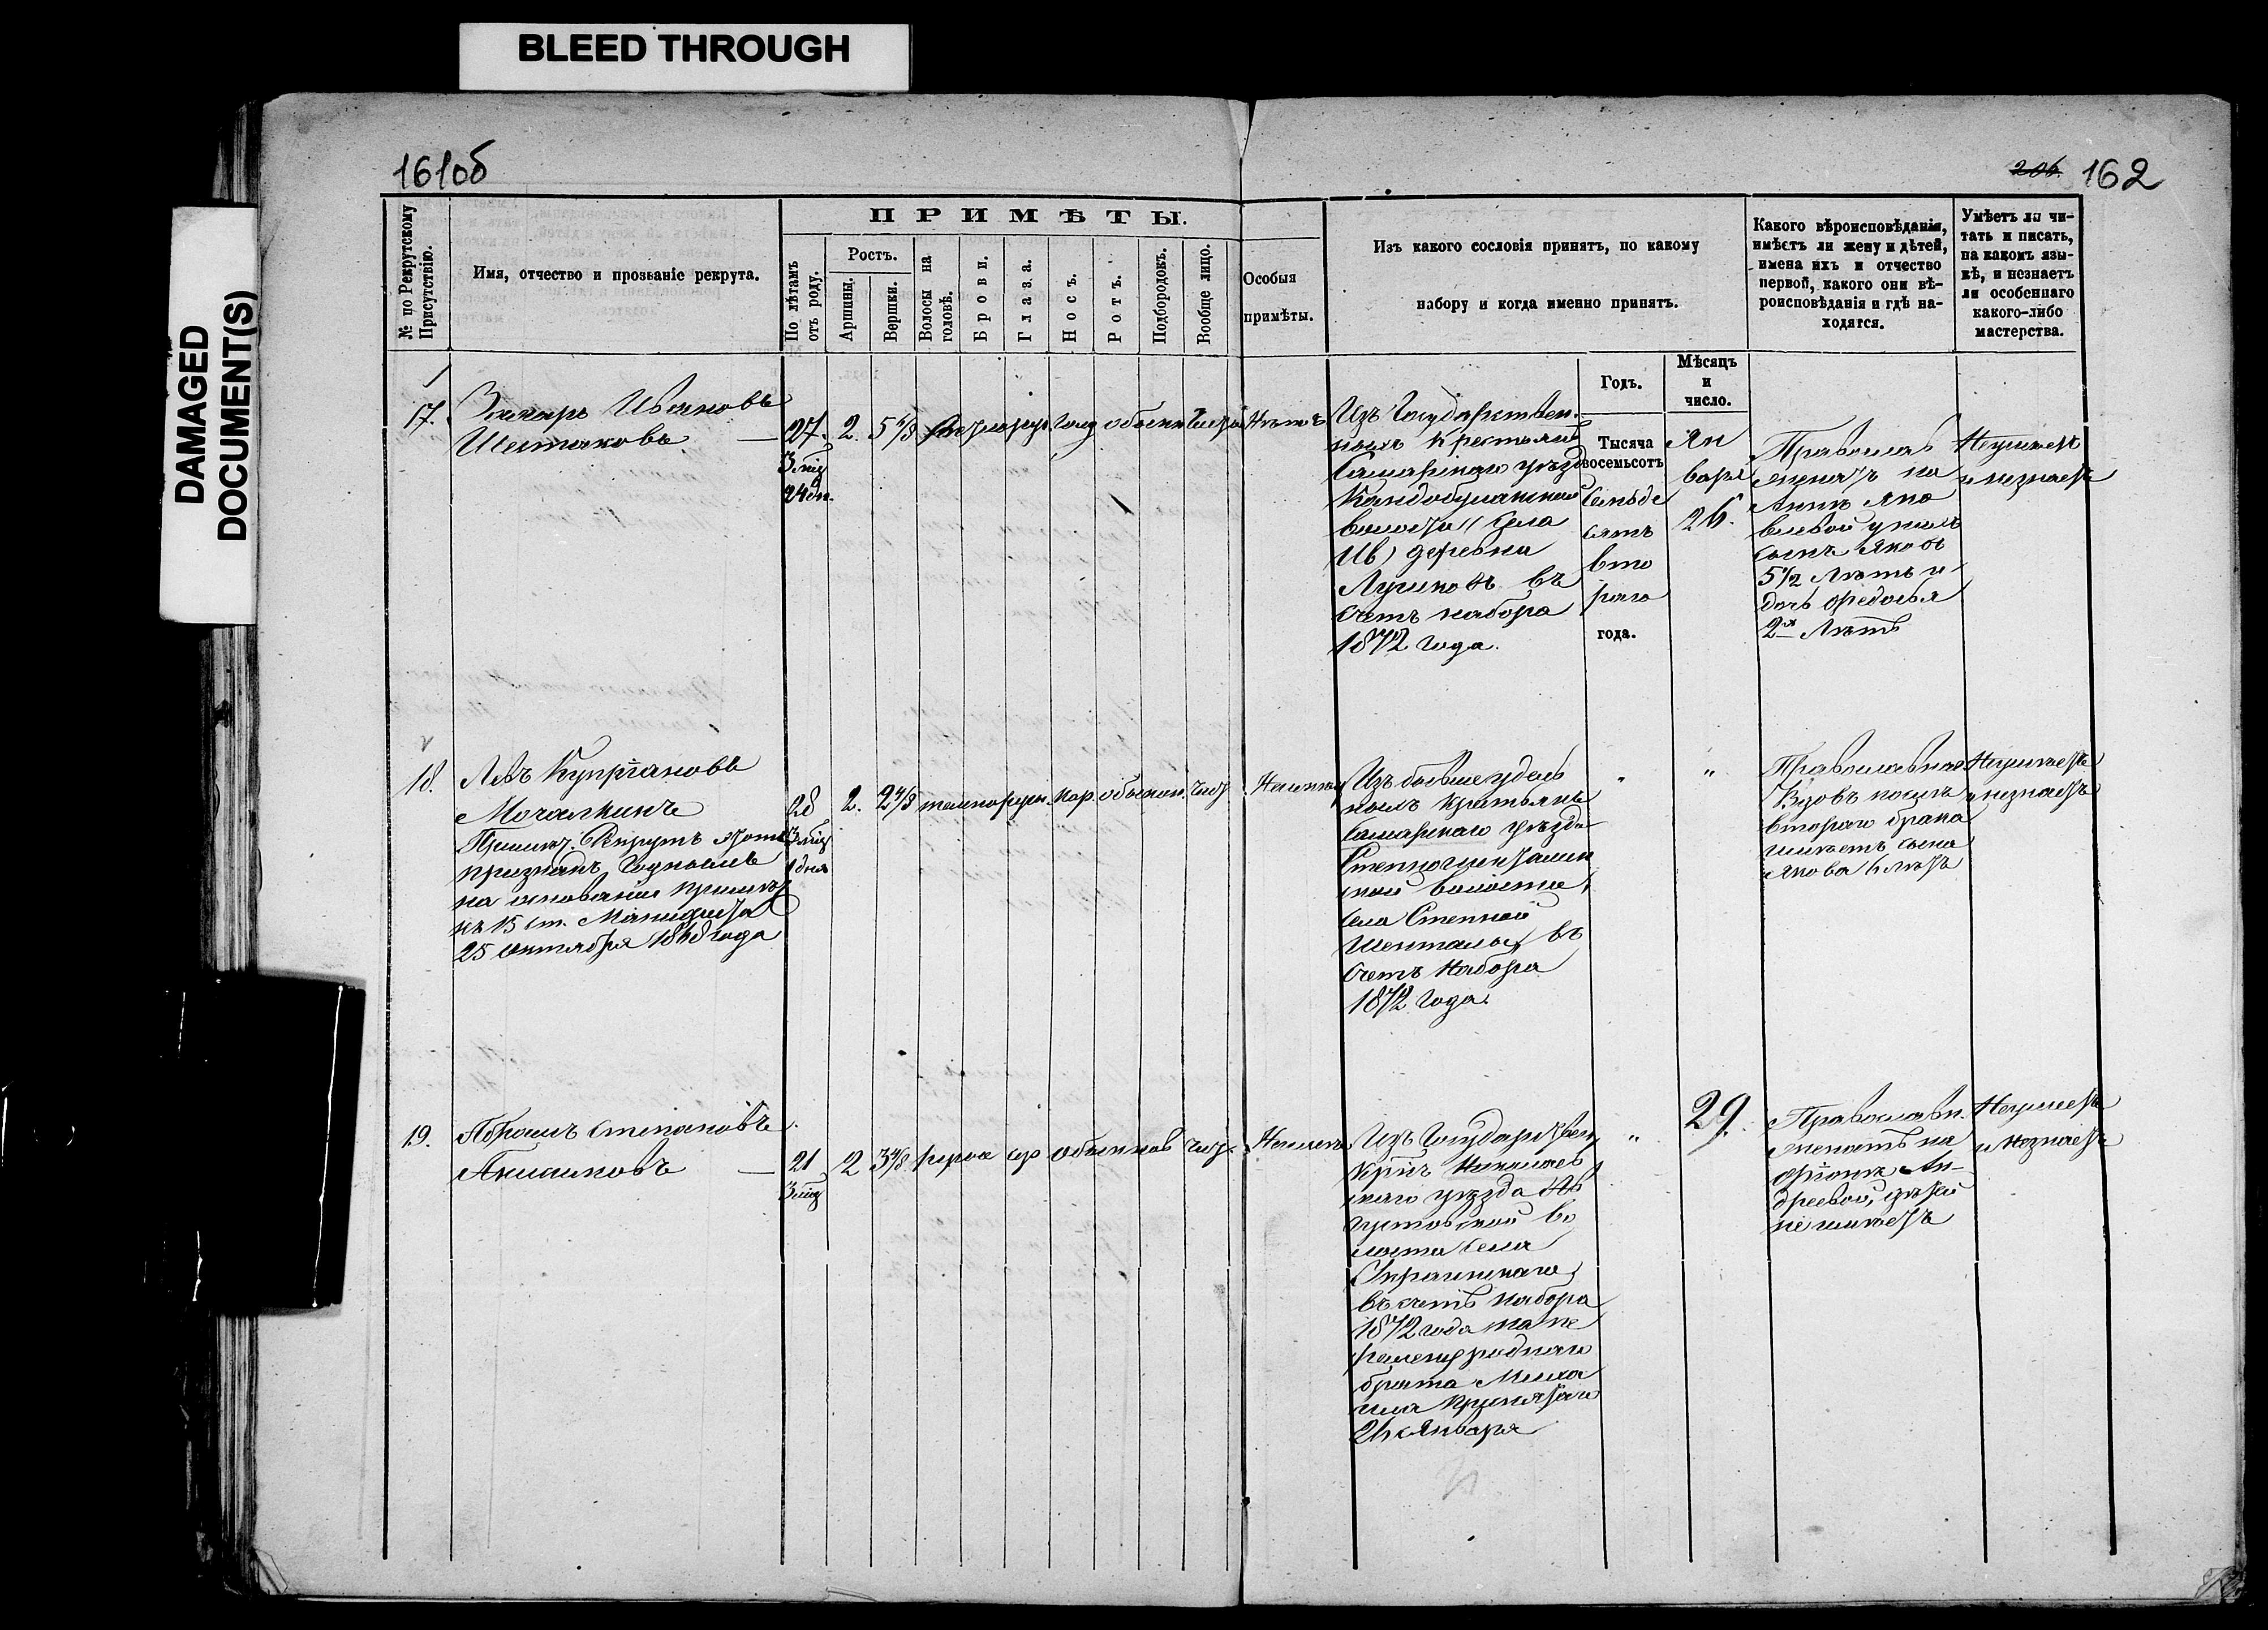 BLEED THROUGH
DAMAGED
DOCUMENT(S)
161об
206. 162
№ по Рекрутскому Присутствію.
Имя, отчество и прозваніе рекрута.
ПРИМѢТЫ.
По лѣтамъ отъ роду.
Ростъ.
Аршины.
Вершки.
Волосы на головѣ.
Брови.
Глаза.
Носъ.
Ротъ.
Подбородокъ.
Вообще лицо.
Особыя
примѣты.
Изъ какого сословія принятъ, по какому
набору и когда именно принятъ.
Какого вѣроисповѣданія,
имѣетъ ли жену и дѣтей,
имена ихъ и отчество
первой, какого они вѣ-
роисповѣданія и гдѣ на-
ходятся.
Умѣетъ ли чи-
тать и писать,
на какомъ язы-
кѣ, и незнаетъ
ли особеннаго
какого-либо
мастерства.
Годъ.
Мѣсяцъ
и
число.
17.
Захаръ Ивановъ
Шестаковъ
27.
3 мѣц
24 дн.
2.
5 4/8
Изъ Государствен-
ныхъ крестьянъ
Самарскаго уѣзда
волости села
деревни
въ
счетъ набора
1872 года.
Тысяча
восемьсотъ
семьде
сятъ
вто
раго
года.
Ян
варя
26.
Православ
женатъ на
Аннѣ Яко
влевой у нихъ
сынъ Яковъ
5 1/2 лѣтъ и
дочь Федосья
2х лѣтъ
Неумѣетъ
и незнаетъ
18.
Левъ Купріяновъ
Мочалкинъ
Примѣч. Рекрутъ этотъ
признанъ годнымъ
на основаніи примѣч
къ 15 ст. Манифеста
25 Октября 1868 года
28
3 мѣц
1 дня
2.
2 4/8
обыкнов. чист
Изъ бывше удѣль
ныхъ крестьянъ
Самарскаго уѣзда
Степношенталин
ской волости,
села Степной
Шенталы, въ
счетъ набора
1872 года.
"
"
Православнаго
Вдовъ послѣ
втораго брака
имѣетъ сына
Якова 6 лѣтъ
Неумѣетъ
и незнаетъ
19.
Абрамъ Степановъ
Аникиновъ
21
3 мѣц
2
3 4/8
русые сѣр обыкнов чист
Изъ Государствен
крттъ Николаев
скаго уѣзда Ав
густовской во
лости села
въ счетъ набора
1872 года на пе
ремѣну роднаго
брата Миха
ила принятаго
26 Января
"
29.
Православн.
женатъ на
Ан-
дреевой, дѣтей
не имѣетъ
Неумѣетъ
и незнаетъ